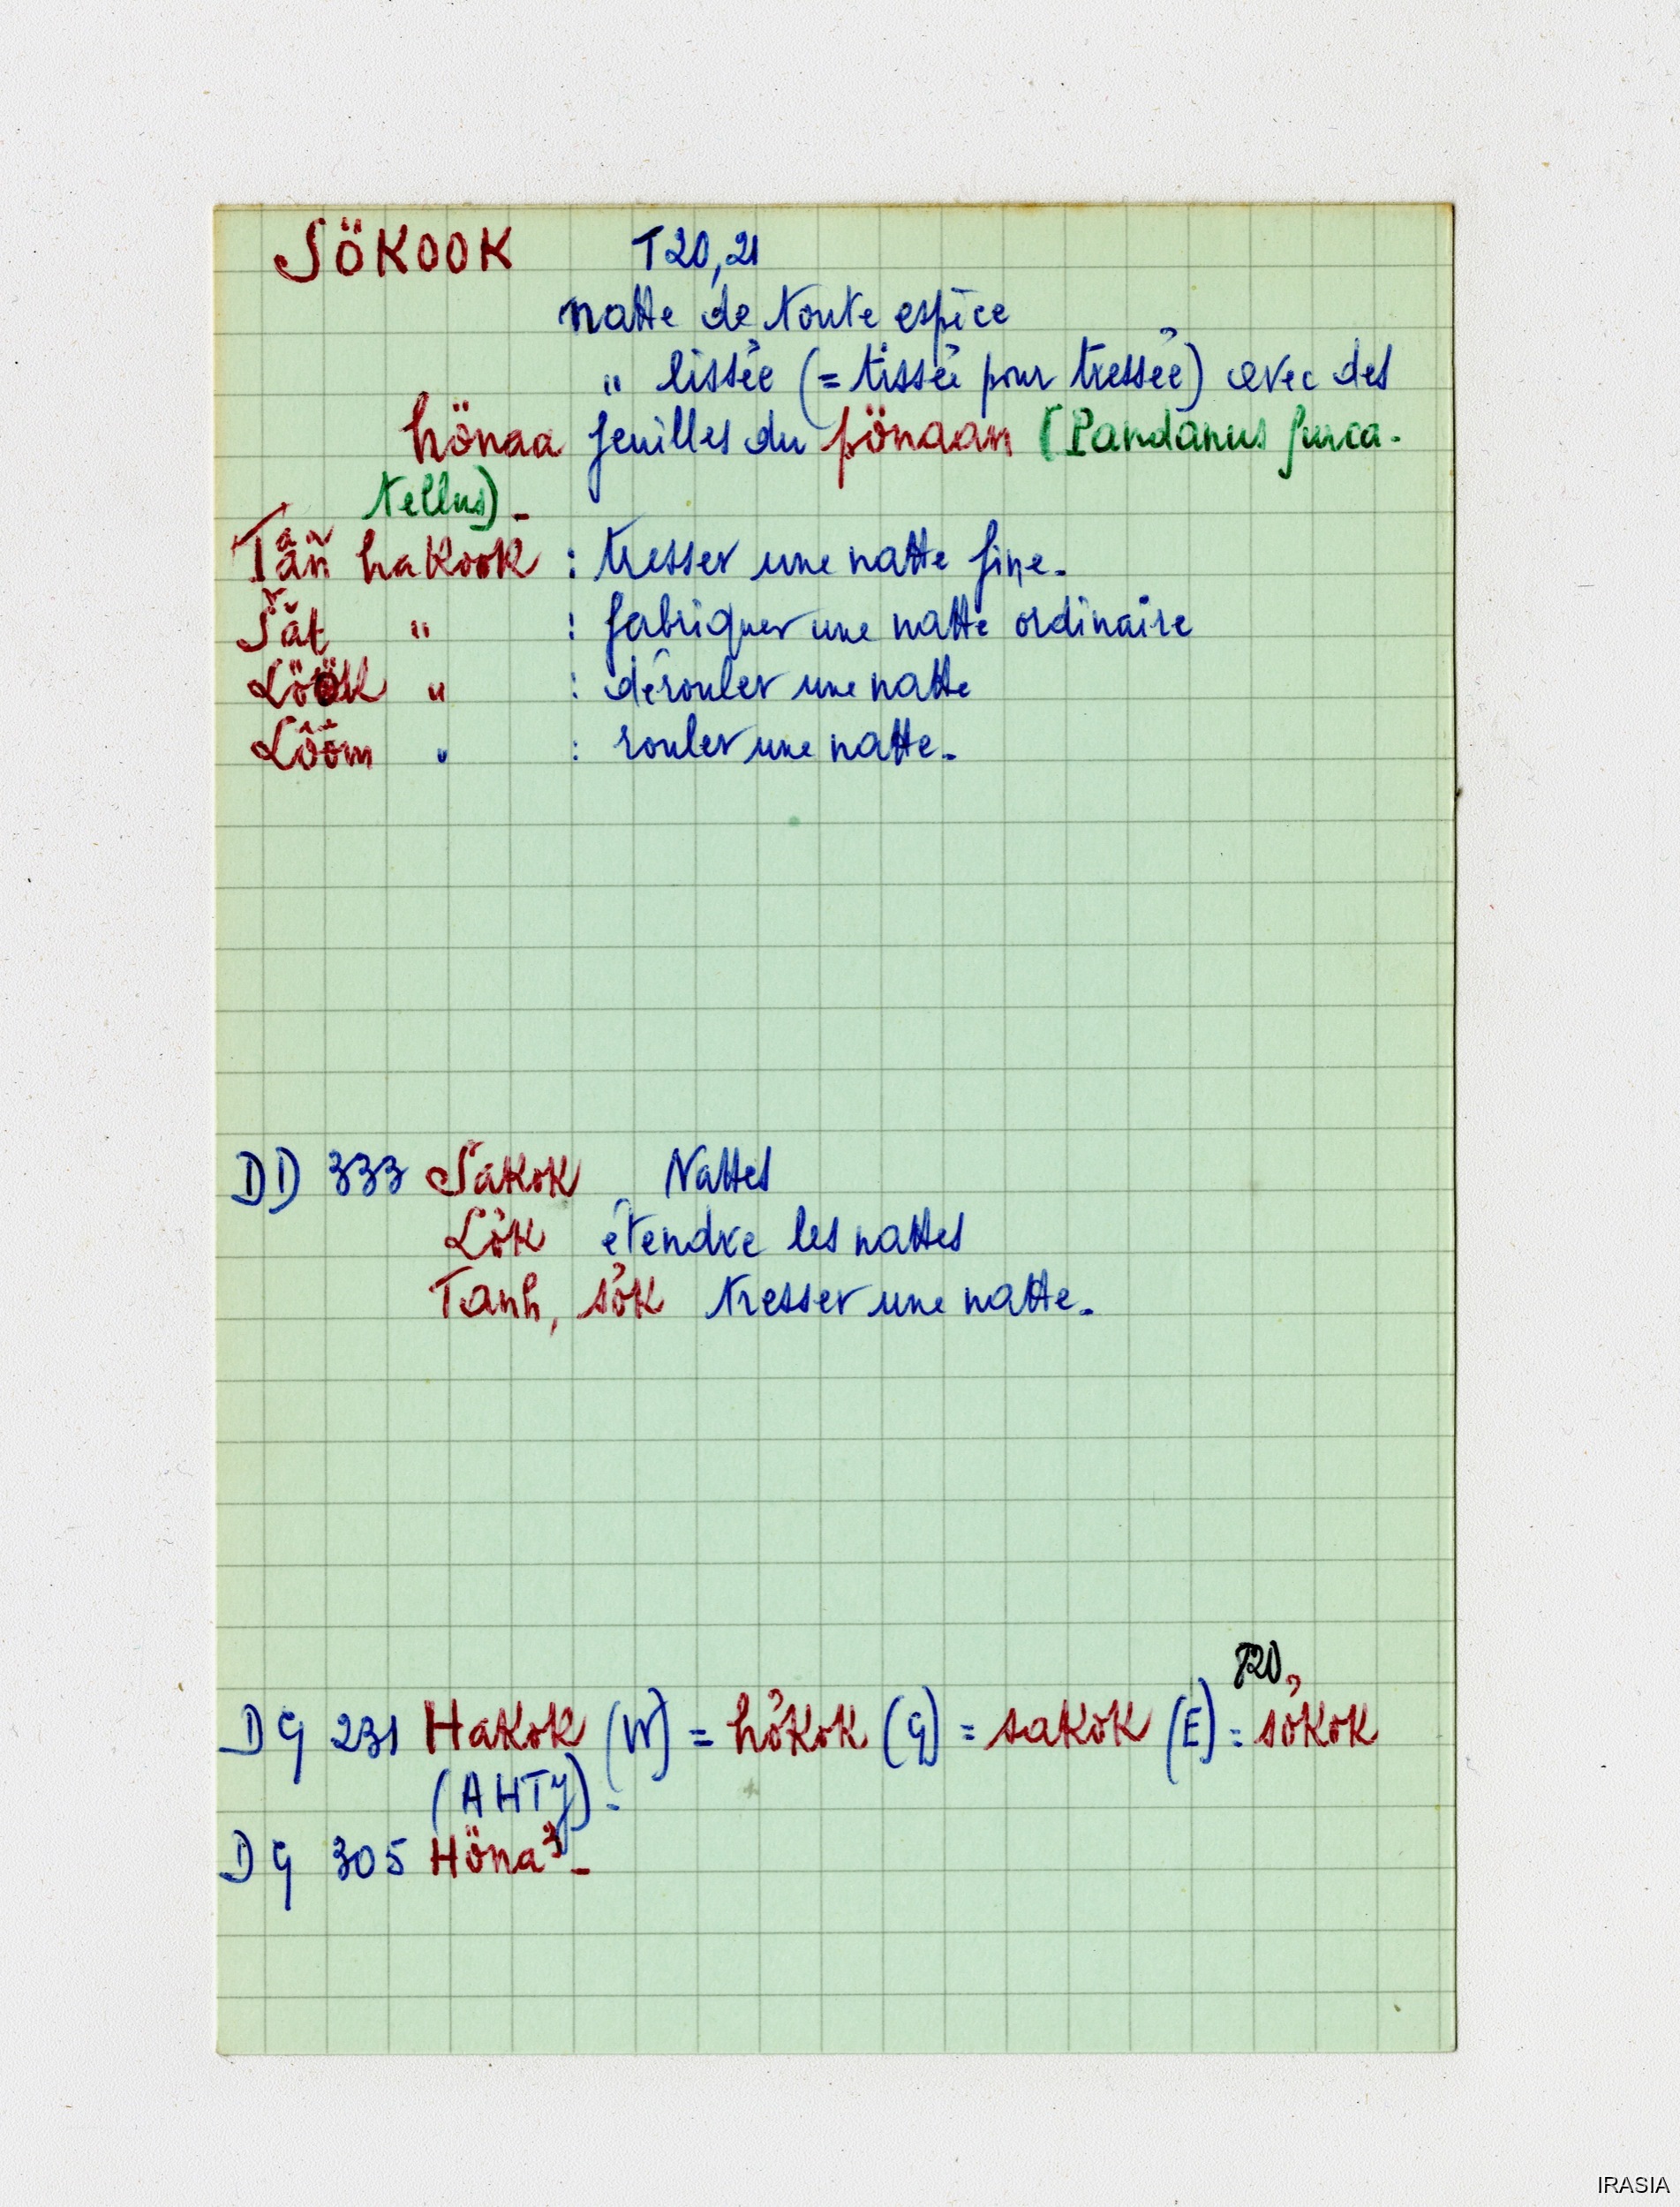 SÖKOOK T20,21
natte de toute espèce
" lissée (= tissée pour tressée) avec des
hönaa feuilles du pönaam (Pandanus furca-
tellus)-
Tăñ hakook : tresser une natte fine.
Săt " : fabriquer une natte ordinaire
Löök " : dérouler une natte
Lôôm " : rouler une natte.
DD 333 Sakok Nattes
Lỏk étendre les nattes
Tanh, sỏk tresser une natte.
T20,
DG 231 Hakok (W) = hỏkok (G) = sakok (E) = sỏkok
(AHTY).
DG 305 Höna³-
IRASIA